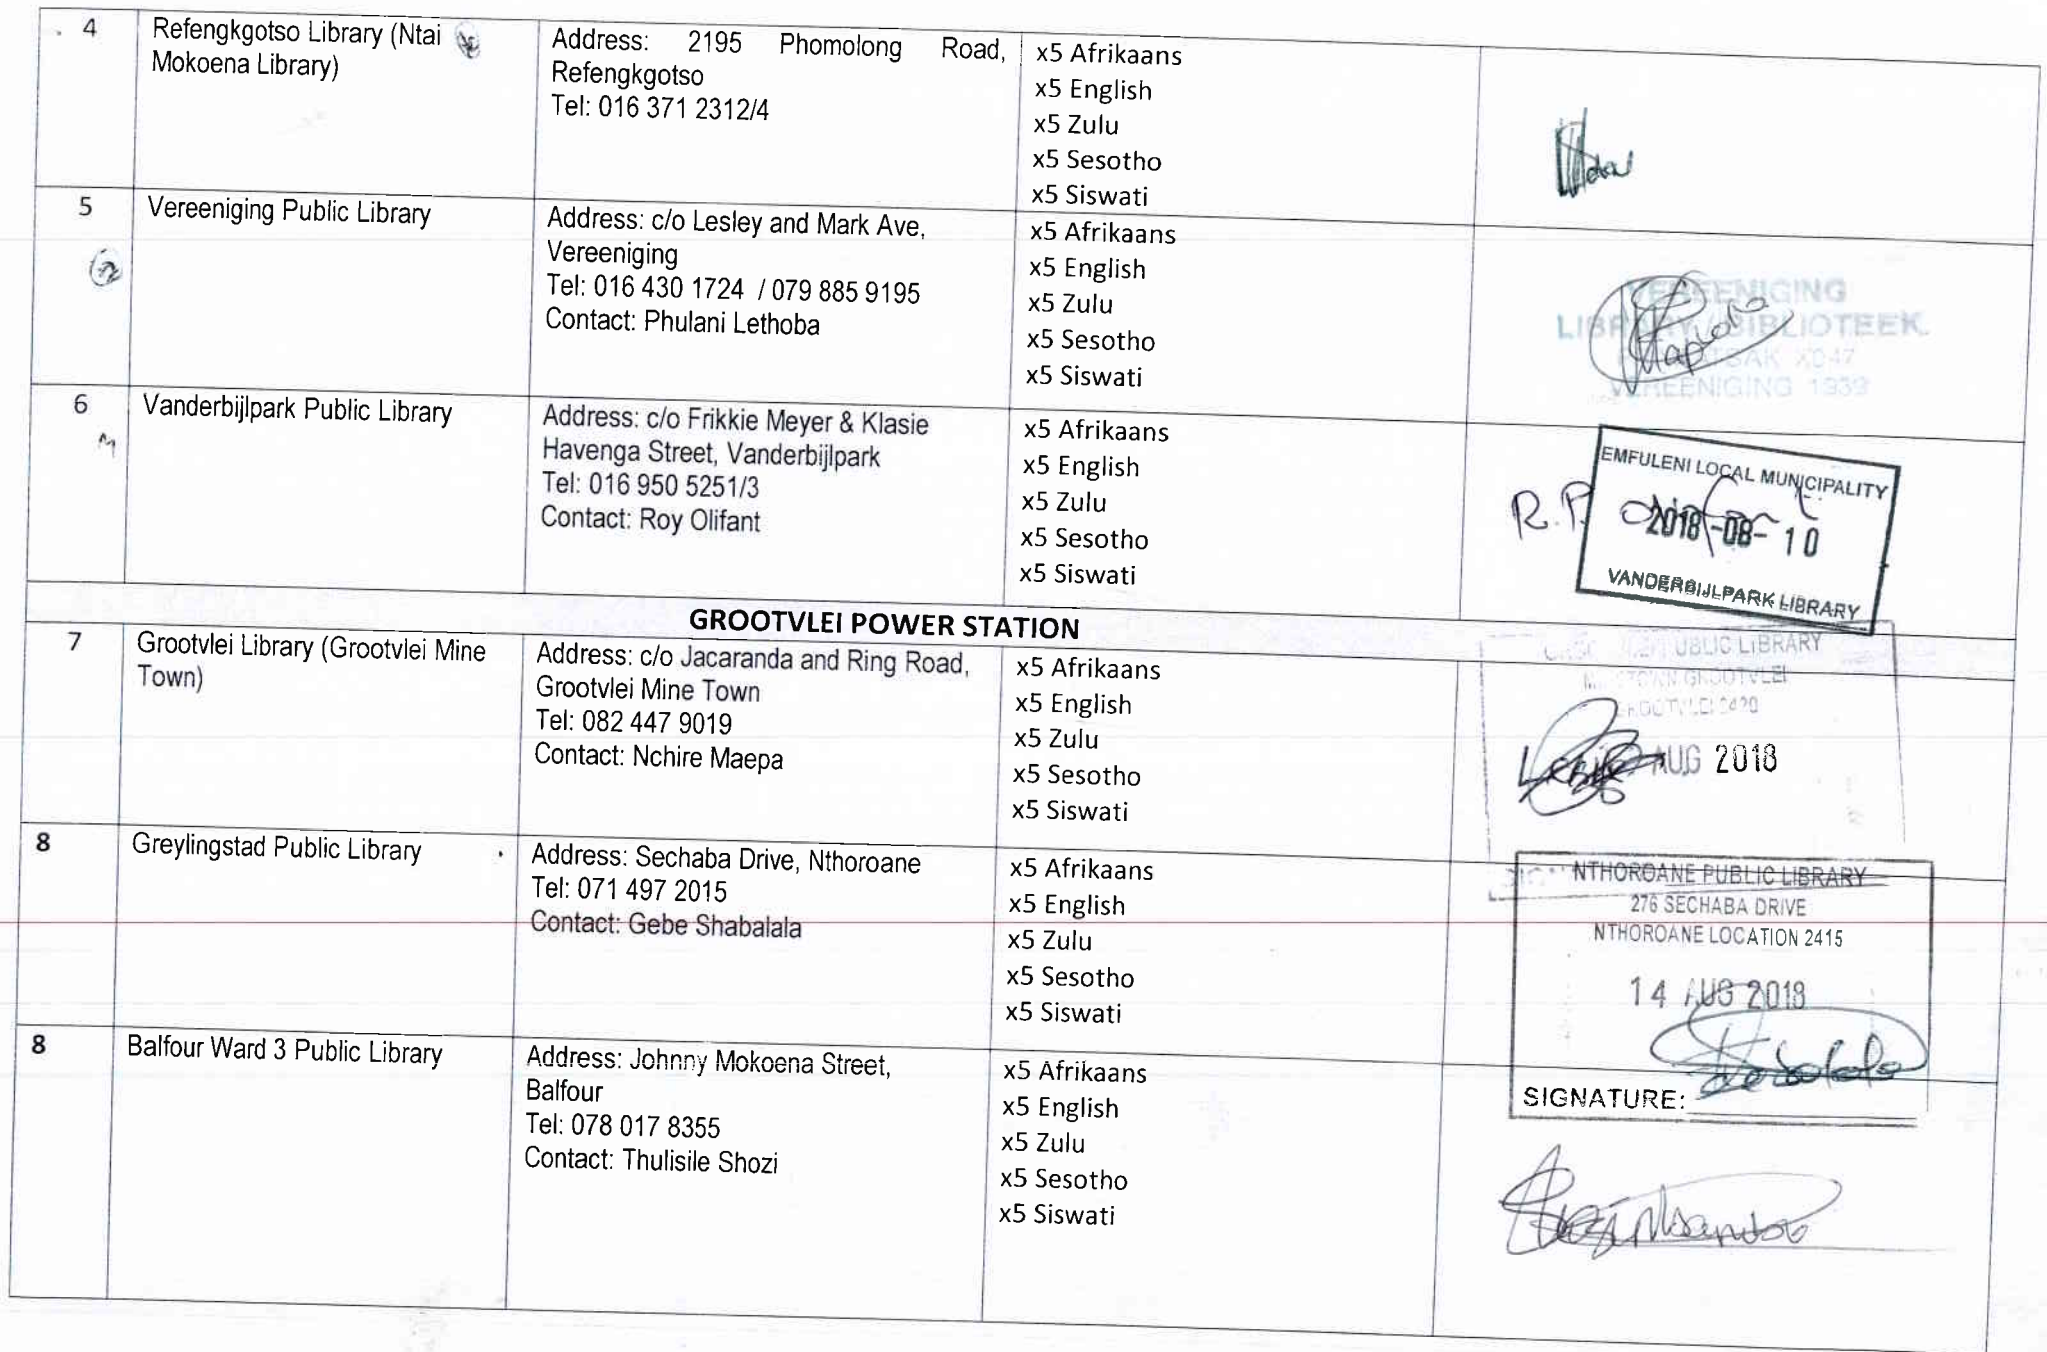 4
Refengkgotso Library (Ntai
Mokoena Library)
Address: 2195 Phomolong Road,
Refengkgotso
Tel: 016 371 2312/4
x5 Afrikaans
x5 English
x5 Zulu
x5 Sesotho
x5 Siswati
5
Vereeniging Public Library
Address: c/o Lesley and Mark Ave,
Vereeniging
Tel: 016 430 1724 / 079 885 9195
Contact: Phulani Lethoba
x5 Afrikaans
x5 English
x5 Zulu
x5 Sesotho
x5 Siswati
VEREENIGING
LIBRARY / BIBLIOTEEK
X047
VEREENIGING 1939
6
Vanderbijlpark Public Library
Address: c/o Frikkie Meyer & Klasie
Havenga Street, Vanderbijlpark
Tel: 016 950 5251/3
Contact: Roy Olifant
x5 Afrikaans
x5 English
x5 Zulu
x5 Sesotho
x5 Siswati
R.P.
EMFULENI LOCAL MUNICIPALITY
2018-08-10
VANDERBIJLPARK LIBRARY
GROOTVLEI POWER STATION
7
Grootvlei Library (Grootvlei Mine
Town)
Address: c/o Jacaranda and Ring Road,
Grootvlei Mine Town
Tel: 082 447 9019
Contact: Nchire Maepa
x5 Afrikaans
x5 English
x5 Zulu
x5 Sesotho
x5 Siswati
PUBLIC LIBRARY
GROOTVLEI
GROOTVLEI 2420
AUG 2018
8
Greylingstad Public Library
Address: Sechaba Drive, Nthoroane
Tel: 071 497 2015
Contact: Gebe Shabalala
x5 Afrikaans
x5 English
x5 Zulu
x5 Sesotho
x5 Siswati
NTHOROANE PUBLIC LIBRARY
276 SECHABA DRIVE
NTHOROANE LOCATION 2415
14 AUG 2018
SIGNATURE:
8
Balfour Ward 3 Public Library
Address: Johnny Mokoena Street,
Balfour
Tel: 078 017 8355
Contact: Thulisile Shozi
x5 Afrikaans
x5 English
x5 Zulu
x5 Sesotho
x5 Siswati